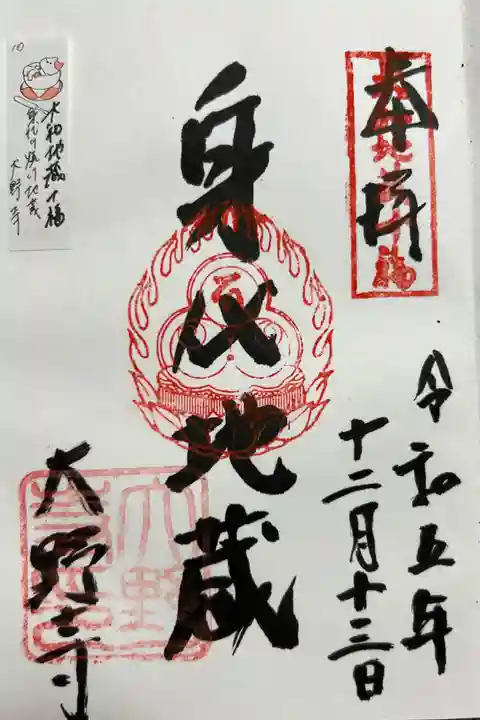 奉拝
令和五年
十二月十三日
身代地蔵
大野寺
10
大和地蔵十福
身代り焼け地蔵
大野寺